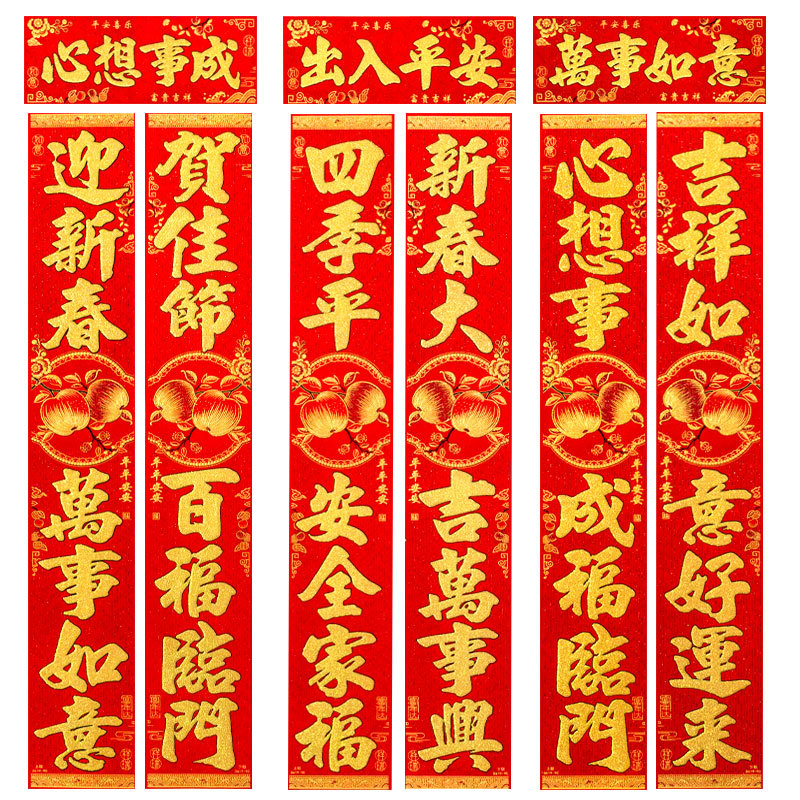 平安喜乐
心想事成
富貴吉祥
平安喜乐
出入平安
富貴吉祥
平安喜乐
萬事如意
富貴吉祥
迎新春萬事如意
賀佳節百福臨門
四季平安全家福
新春大吉萬事興
心想事成福臨門
吉祥如意好運来